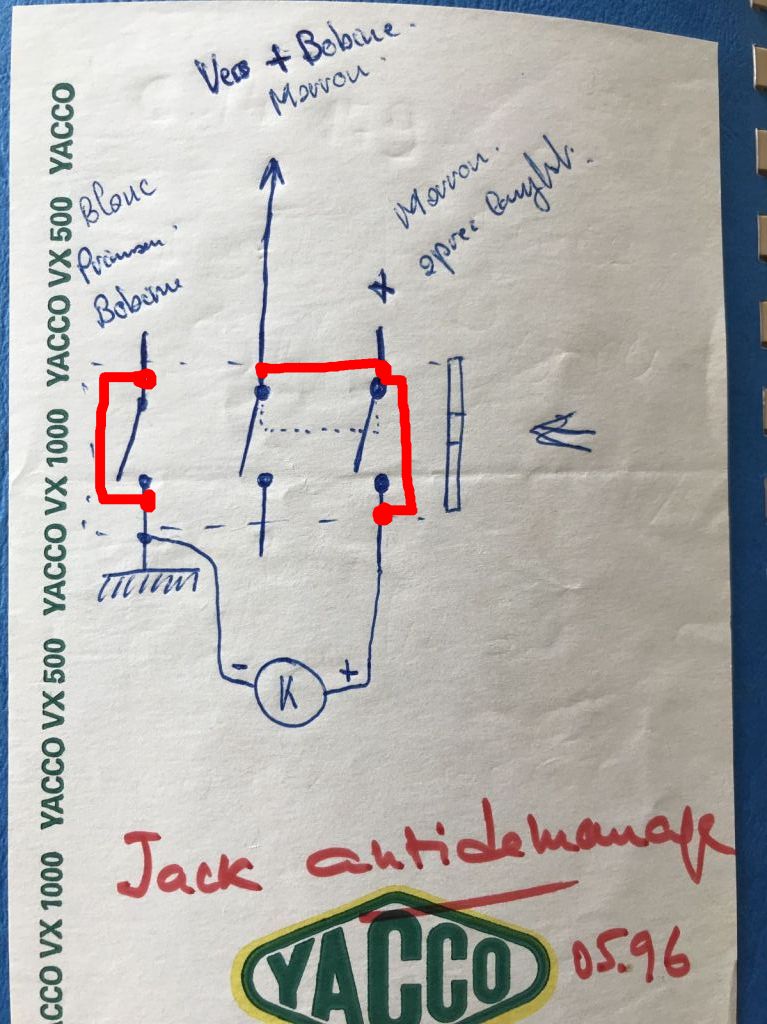 Vers + Bobine.
Marron.
Blanc
Bobine
Marron.
après
- +
K
Jack antidemarrage
05.96
YACCO
YACCO VX 1000 YACCO VX 500 YACCO VX 1000 YACCO VX 500 YACCO